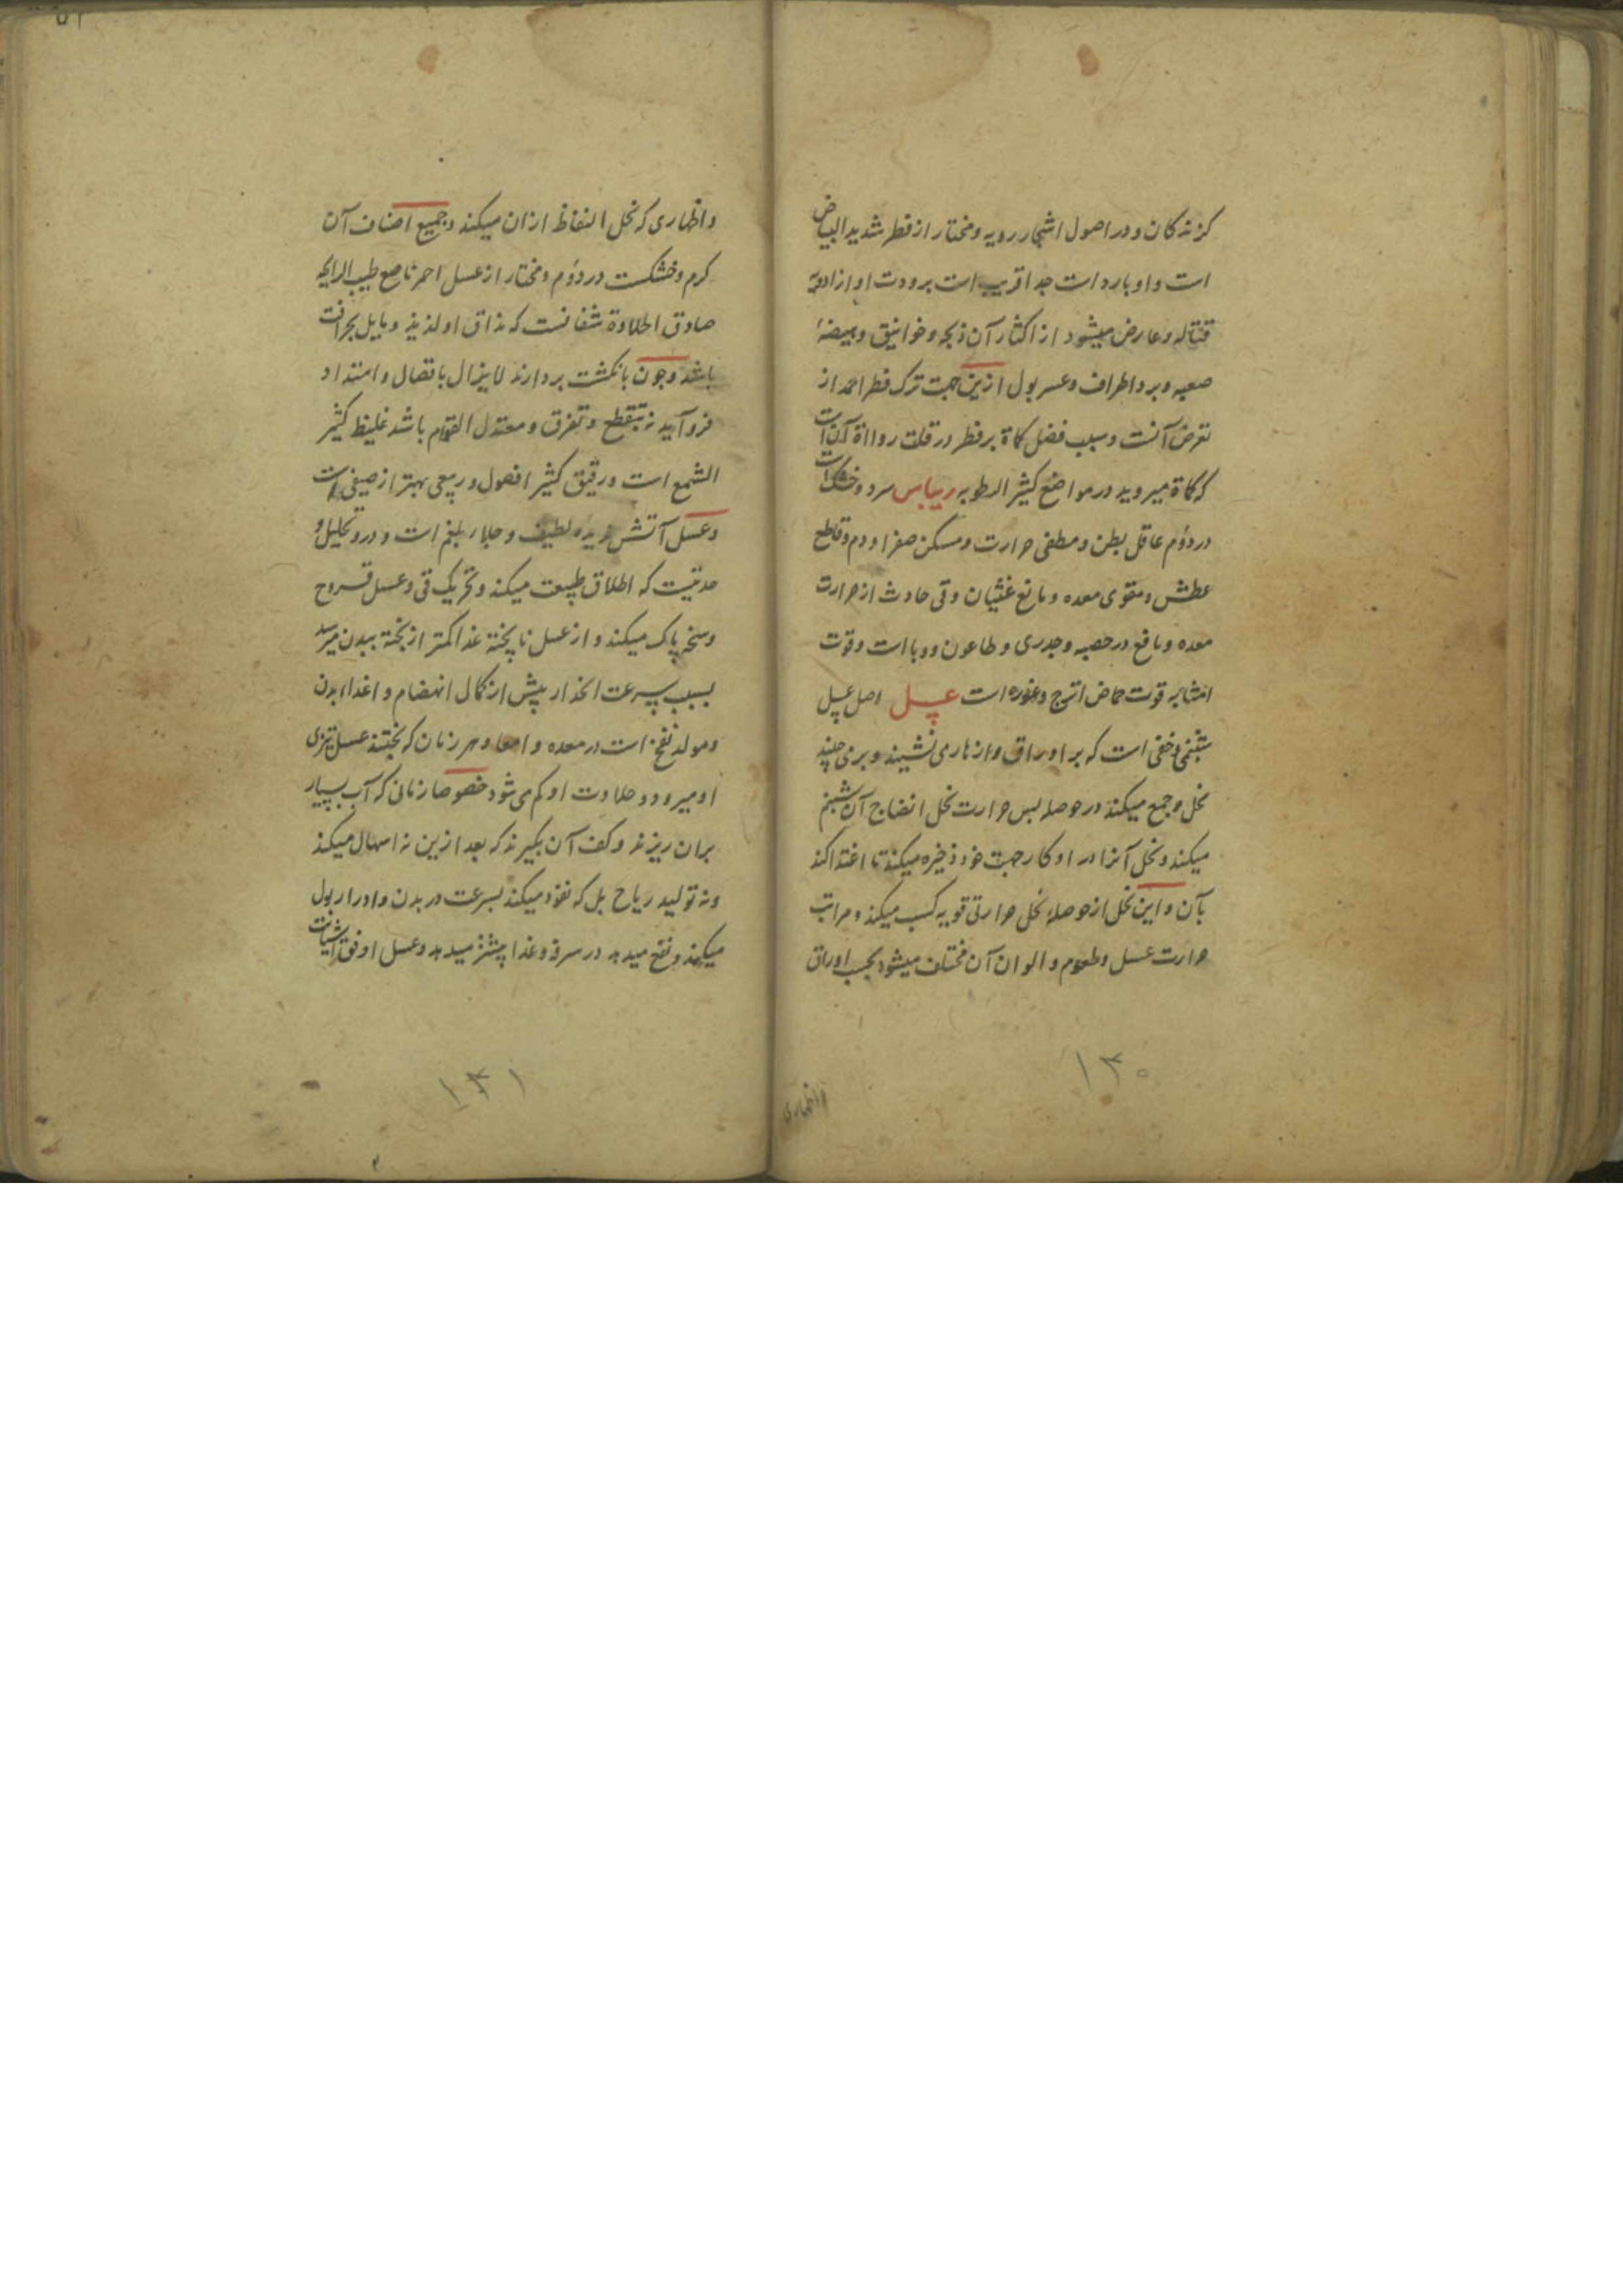 کزندکان و در اصول اشجار رویه و مختار از فطر شدید البیاض
است و او بارد است جدا قریب است برودت او از ادویه
قتاله و عارض میشود از اکثار آن ذبحه و خوانیق و هیضهٔ
صعبه و برد اطراف و عسر بول ازین جهت ترک فطر احمد از
تعرض آنست و سبب فضل کماة بر فطر در قلت رداءة آن است
که کماة میروید در مواضع کثیر الرطوبه ریباس سرد و خشک است
در دوم عاقل بطن و مطفی حرارت و مسکن صفرا و دم و قاطع
عطش و مقوی معده و مانع غثیان و قی حادث از حرارت
معده و نافع در حصبه و جدری و طاعون و وبا است و قوت
افشا به قوت حماض اترج و غوره است عسل اصل عسل
شبنمی خفی است که بر اوراق و ازهار می نشیند و بر می چیند
نحل و جمع میکند در حوصله پس حرارت نحل انضاج آن شبنم
میکند و نحل آنرا در اوکار جهت خود ذخیره میکند تا اغتذا کند
بآن و این نحل از حوصلهٔ نحل حرارتی قویه کسب میکند و مراتب
حرارت عسل و طعوم و الوان آن مختلف میشود بحسب اوراق
۱۳۰
و ازهاری
و ازهاری که نحل التقاط ازان میکند و جمیع اصناف آن
کرم و خشکست در دوم و مختار از عسل احمر ناصع طیب الرایحه
صادق الحلاوة شفافست که مذاق او لذیذ و مایل بحرافت
باشد و چون بانکشت بردارند لایزال باتصال و امتداد
فرو آید نه بتقطع و تفرق و معتدل القوام باشد غلیظ کثیر
الشمع است و رقیق کثیر الفضول و ربیعی بهتر از صیفی است
و عسل آتش دیده لطیف و جلاء بلغم است و درو تحلیل و
حدتیست که اطلاق طبیعت میکند و تحریک قی و غسل قروح
وسخه پاک میکند و از عسل ناپخته غذا کمتر از پخته ببدن میرسد
بسبب سرعت انحدار پیش از کمال انهضام و اغذاء بدن
و مولد نفخ است در معده و امعا و هر زمان که بختند عسل تیزی
او میرود و حلاوت او کم می شود خصوصا زمانی که آب بسیار
بران ریزند و کف آن بگیرند که بعد ازین نه اسهال میکند
و نه تولید ریاح بل که نفوذ میکند بسرعت در بدن و ادرار بول
میکند و نفع میدهد در سرفه و غذا بیشتر میدهد و عسل اوفق اشیاست
۱۳۱